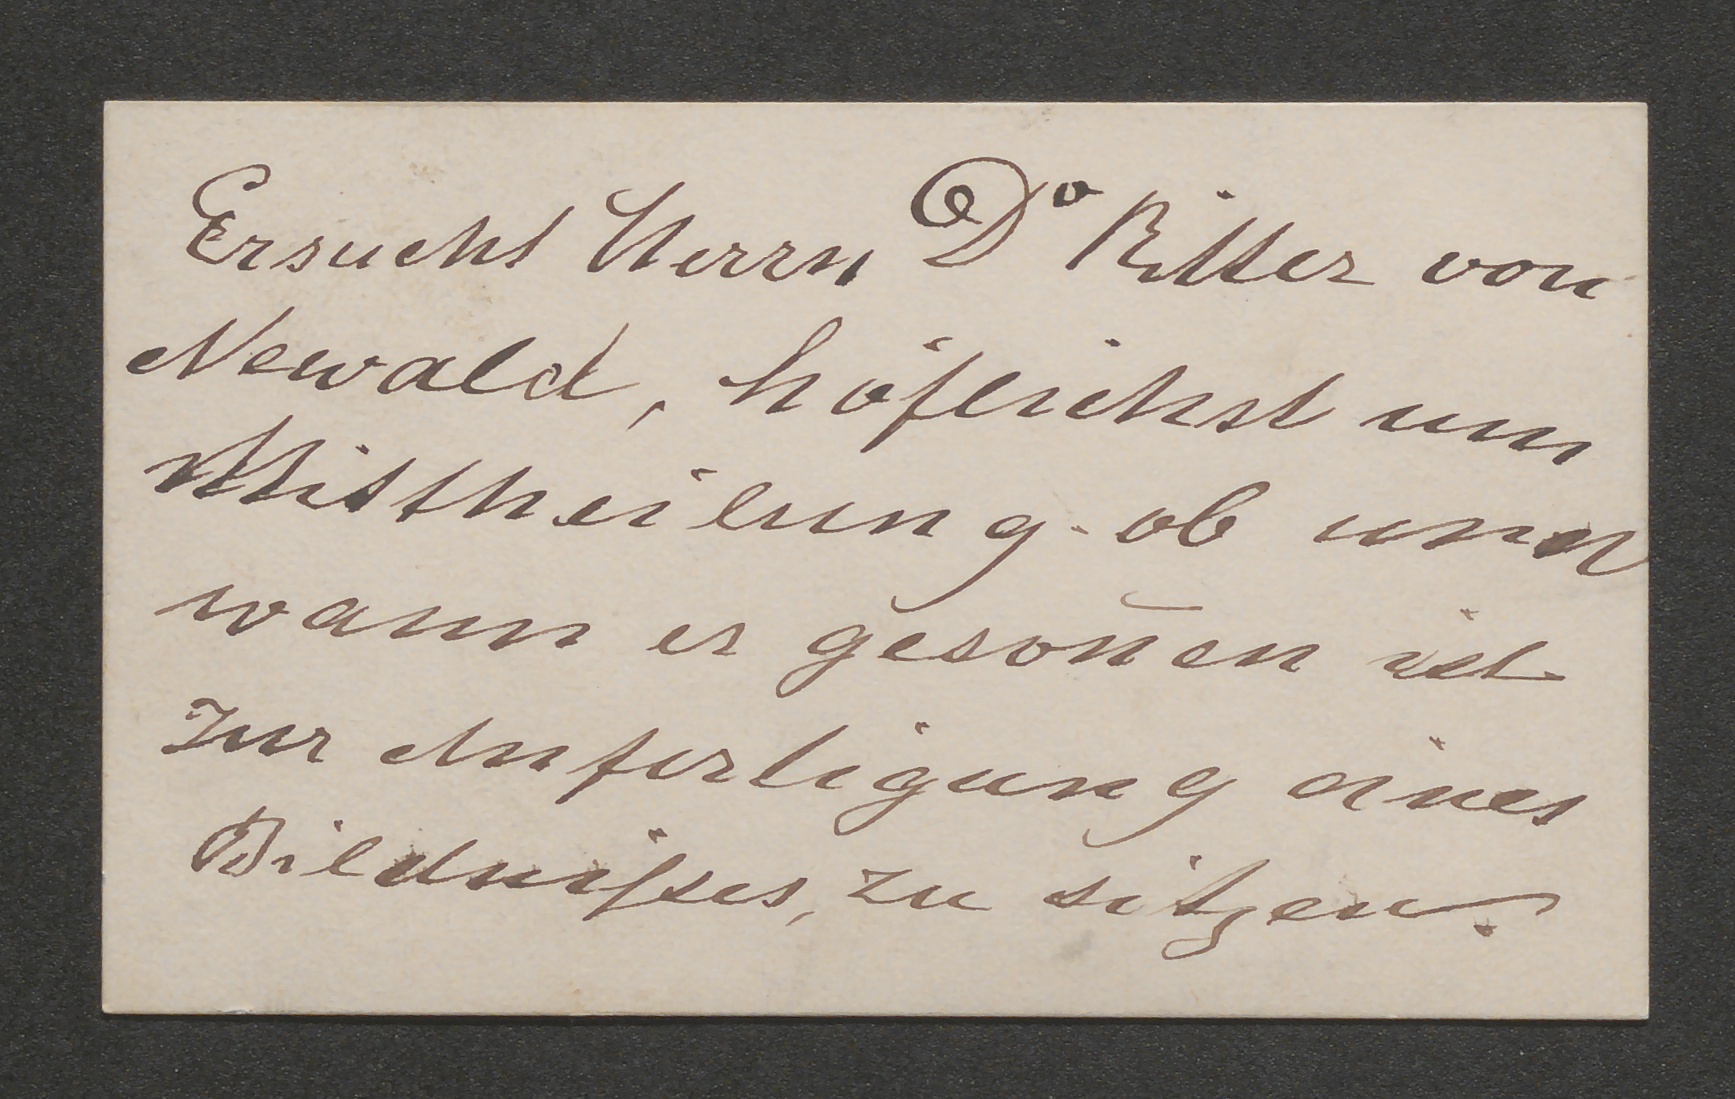 Ersucht Herrn Dr Ritter von
Newald, höflichst um
Mittheilung ob und
wann er gesoñen ist
zur Anfertigung eines
Bildnisses, zu sitzen.